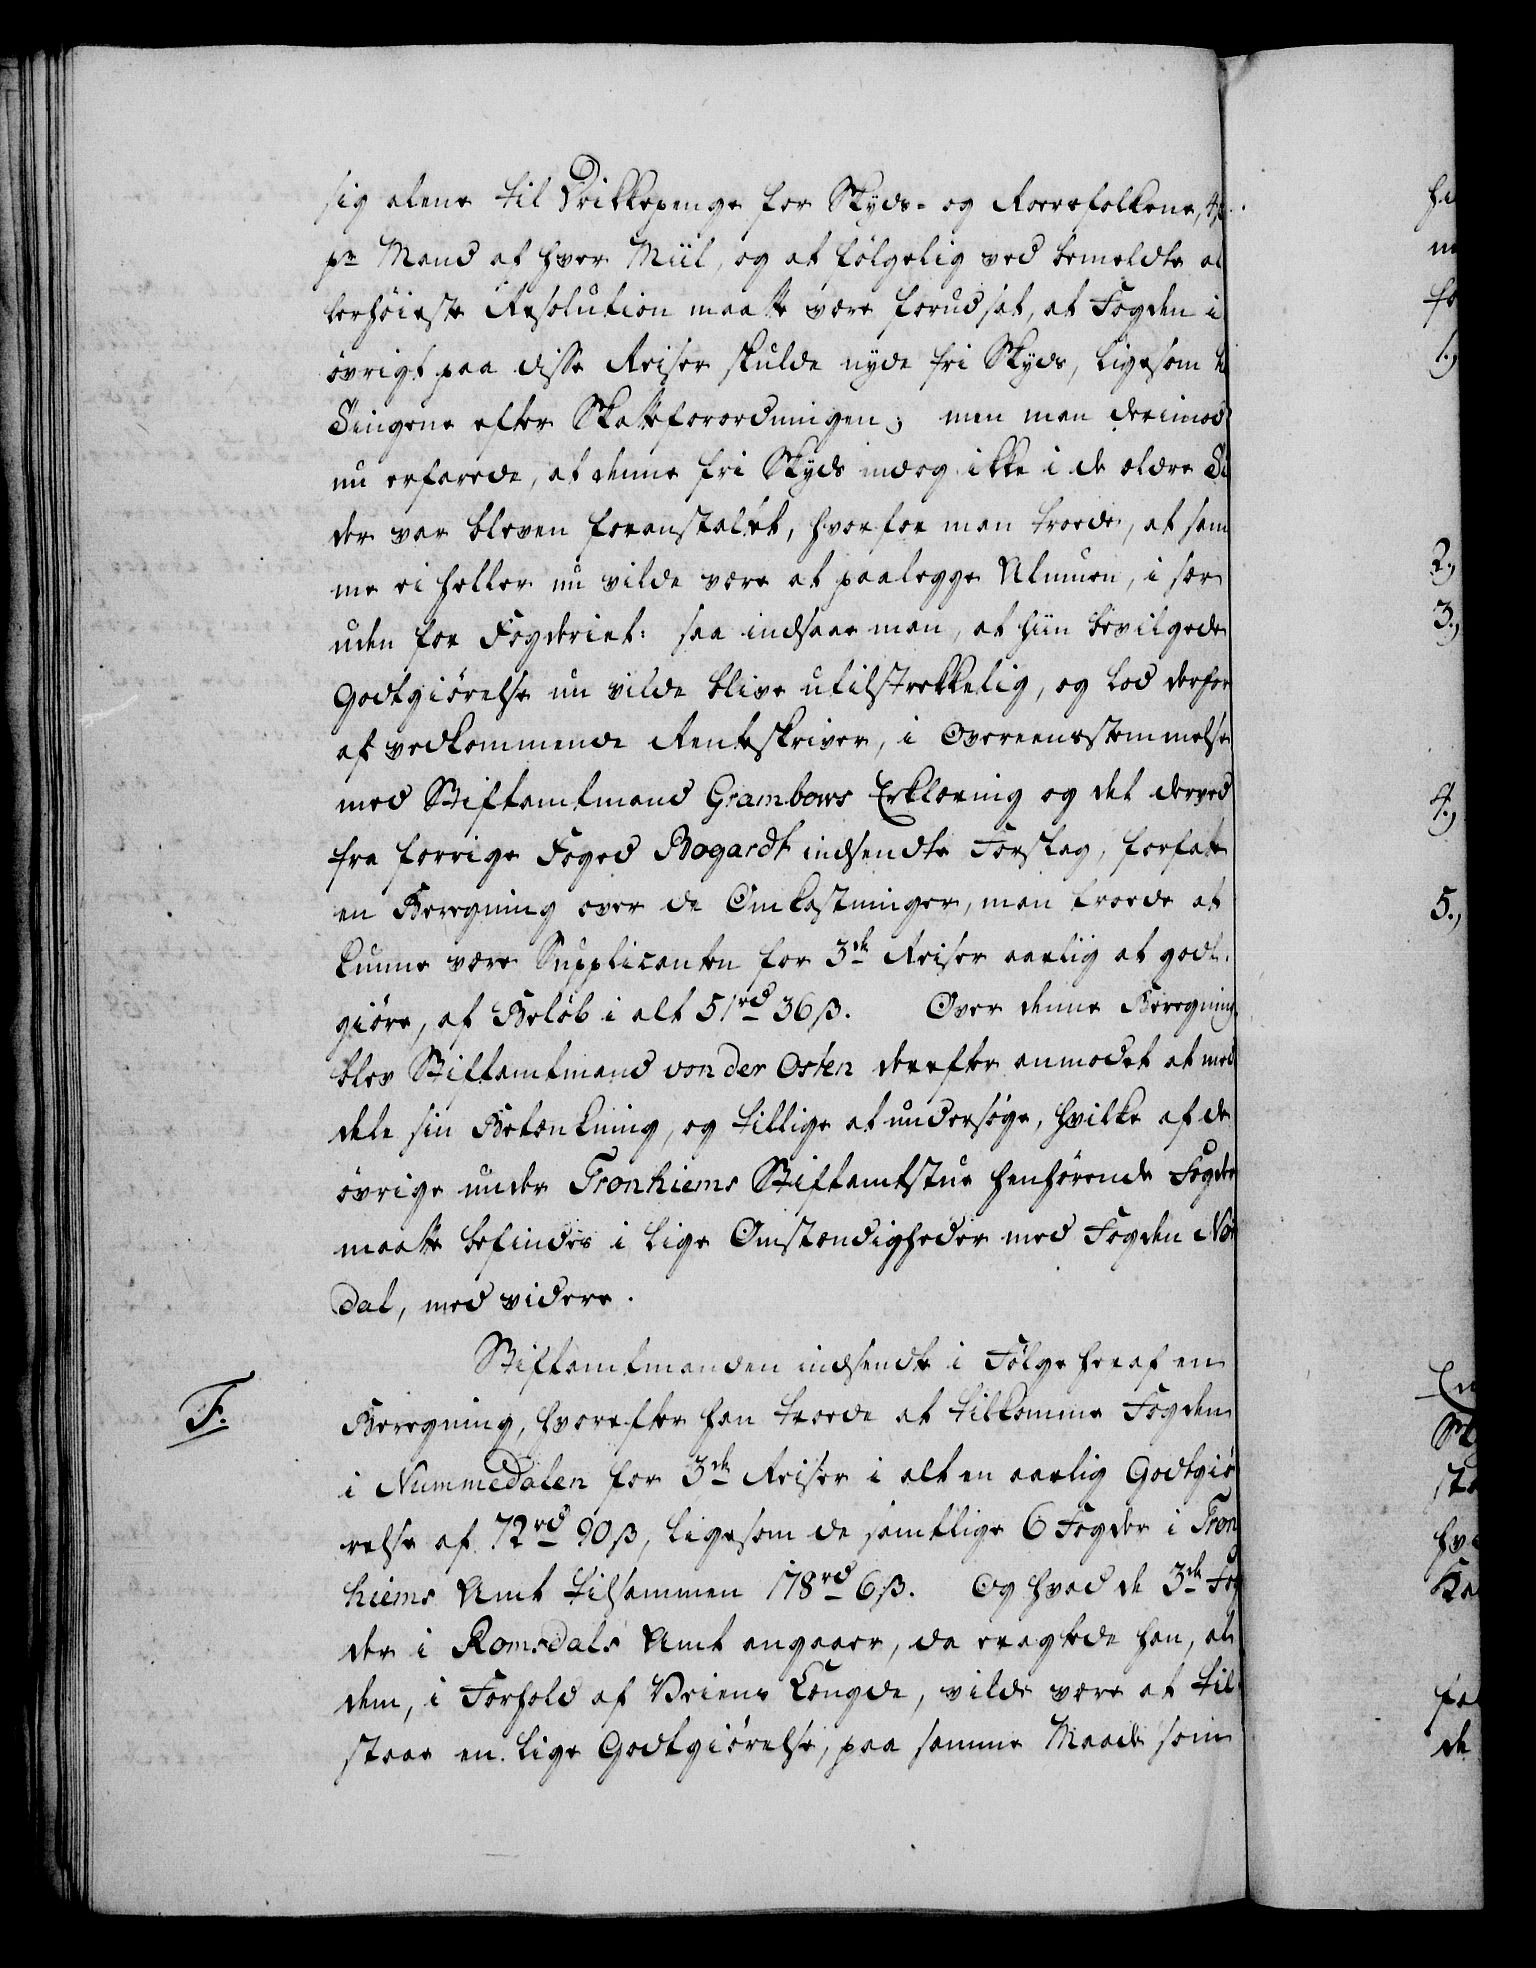 sig alene til Drikkepenge for Skyds- og Roersfolkene, 4ß
pr Mand af hver Miil, og at følgelig ved bemeldte al
lerhöieste Resolution maatte være forudsat, at Fogden i
övrigt paa disse Reiser skulde nyde fri Skyds, ligesom til
Tingene efter Skatteforordningen; men man derimod
nu erfarede, at denne fri Skyds endog ikke i de ældre Ti
der var bleven foranstaltet, hvorfor man troede, at sam
me ei heller nu vilde være at paalegge Almuen, i sær
uden for Fogderiet: saa indsaae man, at hiin bevilgede
Godtgiörelse nu vilde blive utilstrekkelig, og lod derfor
af vedkommende Renteskriver, i Overeensstemmelse
med Stiftamtmand Grambows Erklæring og det derved
fra forrige Foged Bogardt indsendte Forslag, forfatte
en Beregning over de Omkostninger, man troede at
kunne være Supplicanten for 3de Reiser aarlig at godt-
giöre, af Belöb i alt 51rd 36ß. Over denne Beregning
blev Stiftamtmand von der Osten derefter anmodet at med
dele sin Betænkning, og tillige at undersöge, hvilke af de
övrige under Tronhiems Stiftamtstue henhörende Fogder
maatte befindes i lige Omstændigheder med Fogden Nor
dal, med videre.
Stiftamtmanden indsendte i Fölge heraf en
F.
Beregning, hvorefter han troede at tilkomme Fogden
i Nummedalen for 3de Reiser i alt en aarlig Godtgiö
relse af 72rd 90ß, ligesom de samtlige 6 Fogder i Tron
hiems Amt tilsammen 178rd 6ß. Og hvad de 3de Fog
der i Romsdals Amt angaaer, da eragtede han, at
dem, i Forhold af Veiens Længde, vilde være at til-
staae en lige Godtgiörelse, paa samme Maade som
1.,
2.,
3.,
4.,
5.,